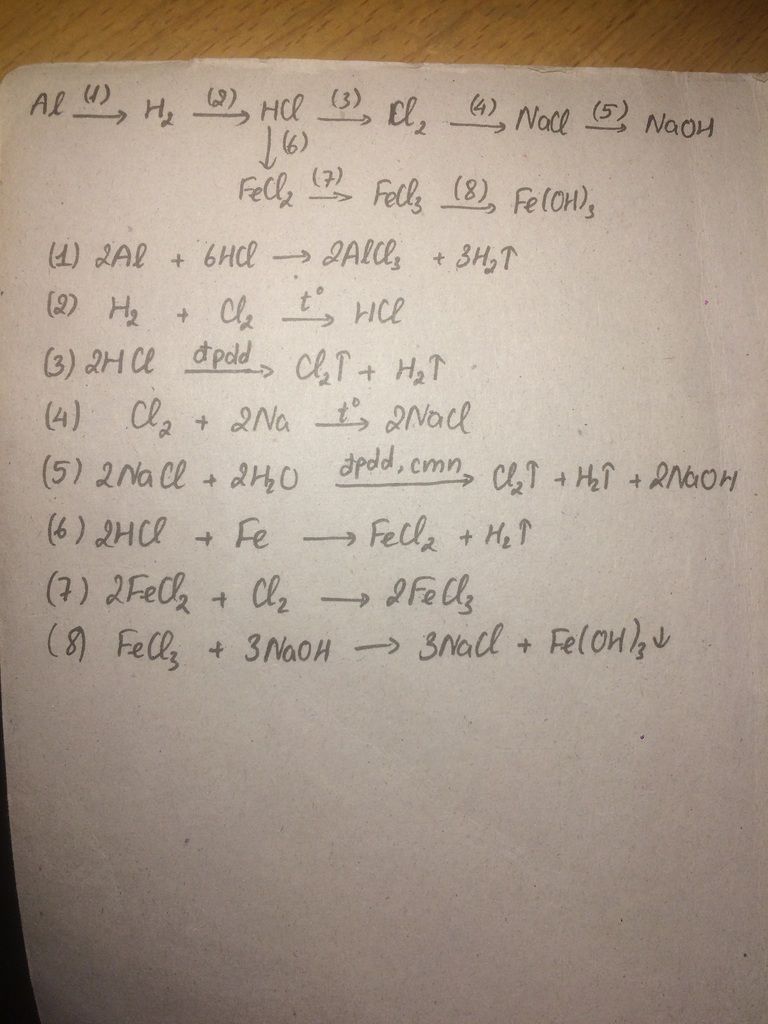 Al (1)→ H₂ (2)→ HCl (3)→ Cl₂ (4)→ NaCl (5)→ NaOH
↓(6)
FeCl₂ (7)→ FeCl₃ (8)→ Fe(OH)₃
(1) 2Al + 6HCl → 2AlCl₃ + 3H₂↑
(2) H₂ + Cl₂ t°→ HCl
(3) 2HCl đpdd→ Cl₂↑ + H₂↑
(4) Cl₂ + 2Na t°→ 2NaCl
(5) 2NaCl + 2H₂O đpdd, cmn→ Cl₂↑ + H₂↑ + 2NaOH
(6) 2HCl + Fe → FeCl₂ + H₂↑
(7) 2FeCl₂ + Cl₂ → 2FeCl₃
(8) FeCl₃ + 3NaOH → 3NaCl + Fe(OH)₃↓